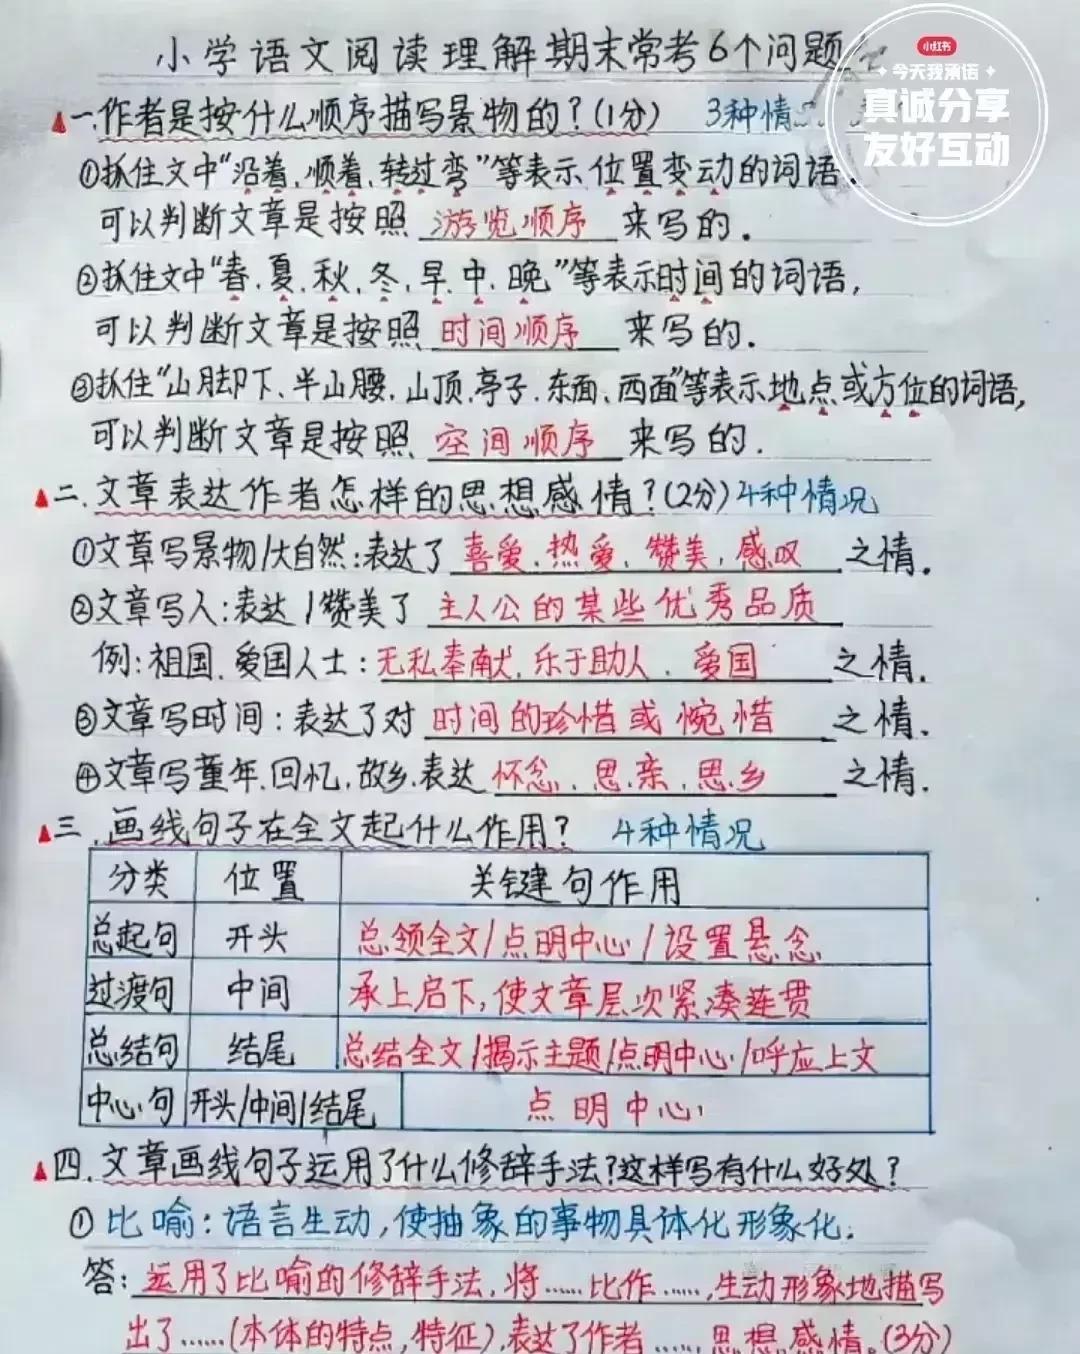 小学语文阅读理解期末常考6个问题
小红书
今天我承诺
真诚分享
友好互动
一.作者是按什么顺序描写景物的?(1分) 3种情
①抓住文中“沿着、顺着、转过弯”等表示位置变动的词语.
可以判断文章是按照 游览顺序 来写的.
②抓住文中“春.夏.秋.冬.早.中.晚”等表示时间的词语,
可以判断文章是按照 时间顺序 来写的.
③抓住“山脚下、半山腰.山顶.亭子.东面、西面”等表示地点或方位的词语,
可以判断文章是按照 空间顺序 来写的.
二.文章表达作者怎样的思想感情?(2分)4种情况
①文章写景物/大自然:表达了 喜爱.热爱、赞美,感叹 之情.
②文章写人:表达/赞美了 主人公的某些优秀品质
例:祖国、爱国人士:无私奉献,乐于助人、爱国 之情.
③文章写时间:表达了对 时间的珍惜或惋惜 之情.
④文章写童年.回忆,故乡.表达 怀念、思亲、思乡 之情.
三.画线句子在全文起什么作用? 4种情况
分类 位置 关键句作用
总起句 开头 总领全文/点明中心/设置悬念
过渡句 中间 承上启下,使文章层次紧凑连贯
总结句 结尾 总结全文/揭示主题/点明中心/呼应上文
中心句 开头/中间/结尾 点明中心
四.文章画线句子运用了什么修辞手法?这样写有什么好处?
①比喻:语言生动,使抽象的事物具体化形象化.
答:运用了比喻的修辞手法,将……比作……,生动形象地描写
出了……(本体的特点,特征),表达了作者……思想感情.(3分)